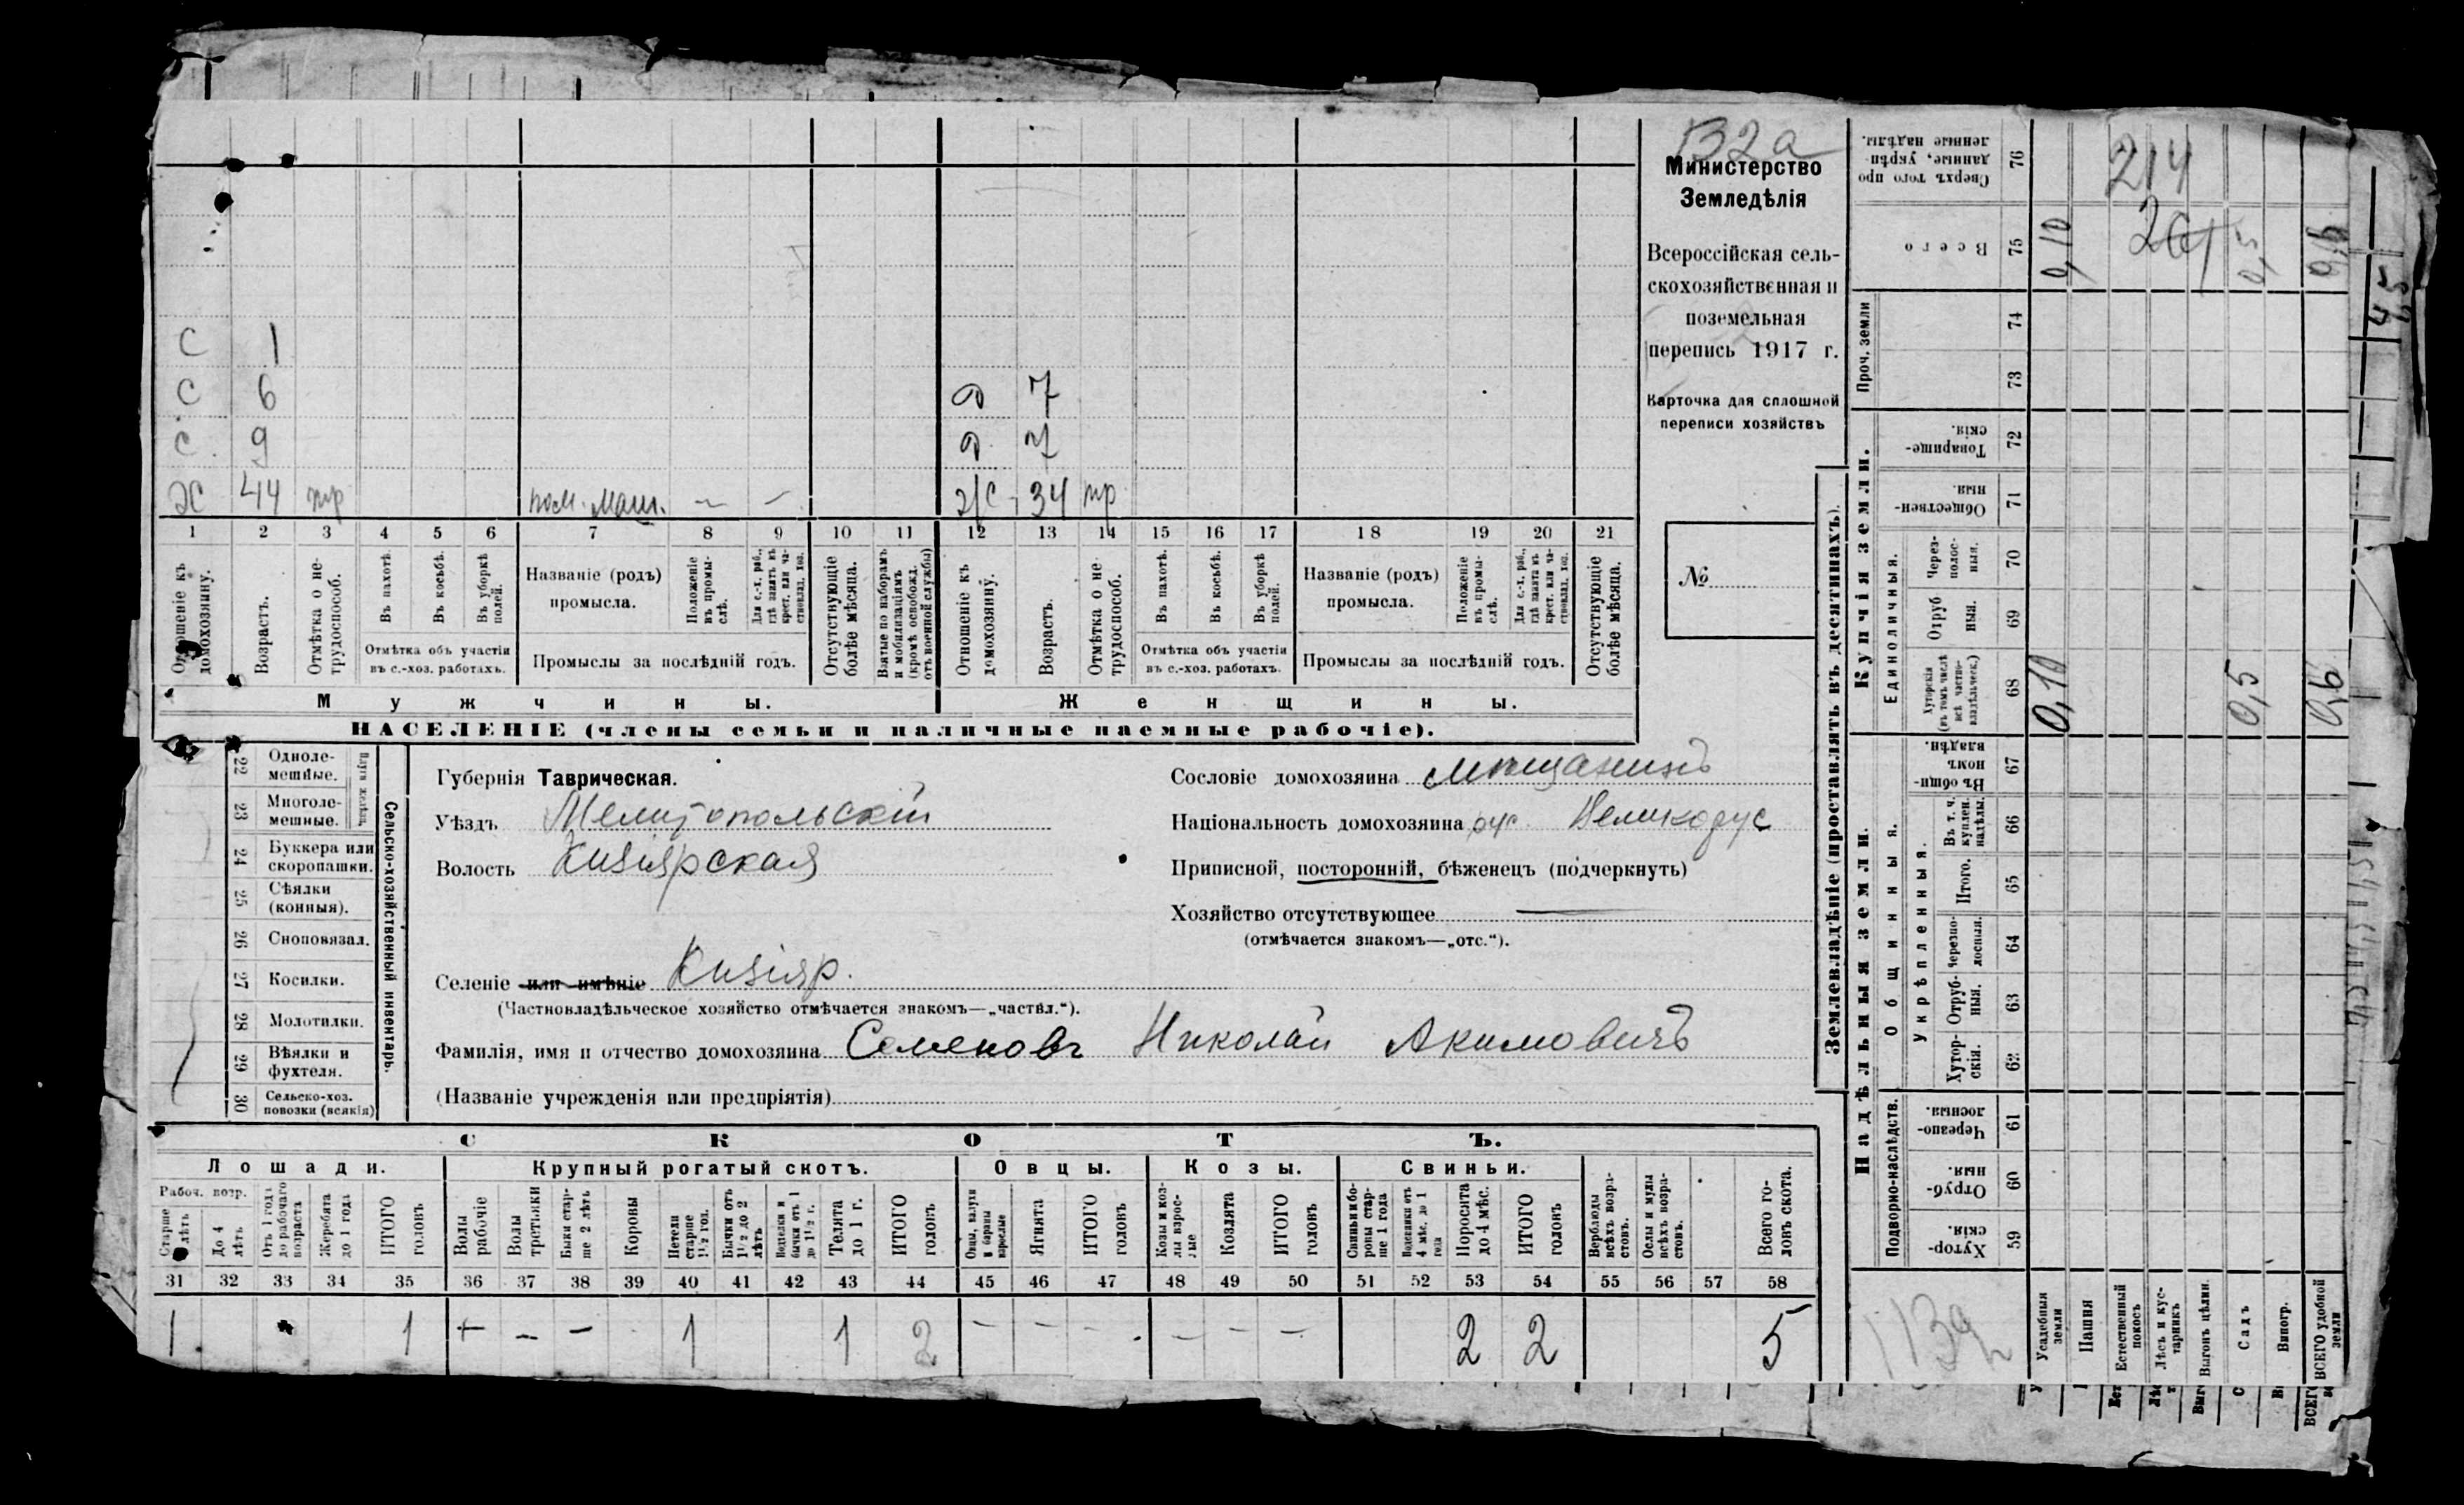 132а
Министерство
Земледѣлія
Всероссійская сель-
скохозяйственная и
поземельная
перепись 1917 г.
Карточка для сплошной
переписи хозяйствъ
№
С 1
С 6 Д 7
С. 9 Д. 7
Х 44 пом. маш. — — 34
1 2 3 4 5 6 7 8 9 10 11 12 13 14 15 16 17 18 19 20 21
Отношеніе къ домохозяину.
Возрастъ.
Отмѣтка о не-трудоспособ.
Въ пахотѣ.
Въ косьбѣ.
Въ уборкѣ полей.
Отмѣтка объ участіи
въ с.-хоз. работахъ.
Названіе (родъ)
промысла.
Положеніе въ промы-слѣ.
Для с.-х. раб., гдѣ занятъ въ крест. или ча-стновлад. хоз.
Промыслы за послѣдній годъ.
Отсутствующіе болѣе мѣсяца.
Взятые по наборамъ и мобилизаціямъ (кромѣ освобожд. отъ военной службы)
Отношеніе къ домохозяину.
Возрастъ.
Отмѣтка о не трудоспособ.
Въ пахотѣ.
Въ косьбѣ.
Въ уборкѣ полей.
Отмѣтка объ участіи
въ с.-хоз. работахъ.
Названіе (родъ)
промысла.
Положеніе въ промы-слѣ.
Для с.-х. раб., гдѣ занята въ крест. или ча-стновлад. хоз.
Промыслы за послѣдній годъ.
Отсутствующіе болѣе мѣсяца.
Мужчины. Женщины.
НАСЕЛЕНІЕ (члены семьи и наличные наемные рабочіе).
22 Одноле-мешные.
23 Многоле-мешные.
Плуги желѣзн.
24 Буккера или скоропашки.
25 Сѣялки (конныя).
26 Сноповязал.
27 Косилки.
28 Молотилки.
29 Вѣялки и фухтеля.
30 Сельско-хоз. повозки (всякія)
Сельско-хозяйственный инвентарь.
Губернія Таврическая.
Уѣздъ Мелитопольскій
Волость Кизіярская
Селеніе или имѣніе Кизіяр.
(Частновладѣльческое хозяйство отмѣчается знакомъ—„частвл.“).
Фамилія, имя и отчество домохозяина Семеновъ Николай Акимовичъ
(Названіе учрежденія или предпріятія)
Сословіе домохозяина Мѣщанинъ
Національность домохозяина рус. Великорус
Приписной, посторонній, бѣженецъ (подчеркнуть)
Хозяйство отсутствующее —
(отмѣчается знакомъ—„отс.“).
СКОТЪ.
Лошади. Крупный рогатый скотъ. Овцы. Козы. Свиньи.
Рабоч. возр.
Старше 4 лѣтъ
До 4 лѣтъ
Отъ 1 года до рабочаго возраста
Жеребята до 1 года
ИТОГО головъ
Волы рабочіе
Волы третьяки
Быки стар-ше 2 лѣтъ
Коровы
Нетели старше 1½ год.
Бычки отъ 1½ до 2 лѣтъ
Водтелки и бычки отъ 1 до 1½ г.
Телята до 1 г.
ИТОГО головъ
Овцы, валухи и бараны взрослые
Ягнята
ИТОГО головъ
Козы и коз-лы взрос-лые
Козлята
ИТОГО головъ
Свиньи и бо-ровы стар-ше 1 года
Подсвинки отъ 4 мѣс. до 1 года
Поросята до 4 мѣс.
ИТОГО головъ
Верблюды всѣхъ возра-стовъ.
Ослы и мулы всѣхъ возра-стовъ.
Всего го-ловъ скота.
31 32 33 34 35 36 37 38 39 40 41 42 43 44 45 46 47 48 49 50 51 52 53 54 55 56 57 58
1 1 + — — 1 1 2 — — — — — — 2 2 5
Землевладѣніе (проставлять въ десятинахъ).
Надѣльныя земли.
Купчія земли.
Проч. земли
Подворно-наслѣдств.
Общинныя.
Укрѣпленныя.
Единоличныя.
Хутор-скія. 59
Отруб-ныя. 60
Черезпо-лосныя. 61
Хутор-скія. 62
Отруб-ныя. 63
Черезпо-лосныя. 64
Итого. 65
Въ т. ч. куплен. надѣлы. 66
Въ общи-номъ владѣн. 67
Хуторскія (въ томъ числѣ всѣ частно-владѣльческ.) 68
Отруб ныя. 69
Через-полос-ныя. 70
Обществен-ныя. 71
Товарище-скія. 72
73
74
Всего 75
Сверхъ того про данные, укрѣп-ленные надѣлы. 76
Усадебныя земли 0,10 0,10
Пашня
Естественный покосъ
Лѣсъ и кус-тарникъ
Выгонъ цѣлин.
Садъ 0,5 0,5
Виногр.
ВСЕГО удобной земли 0,6 0,6
214